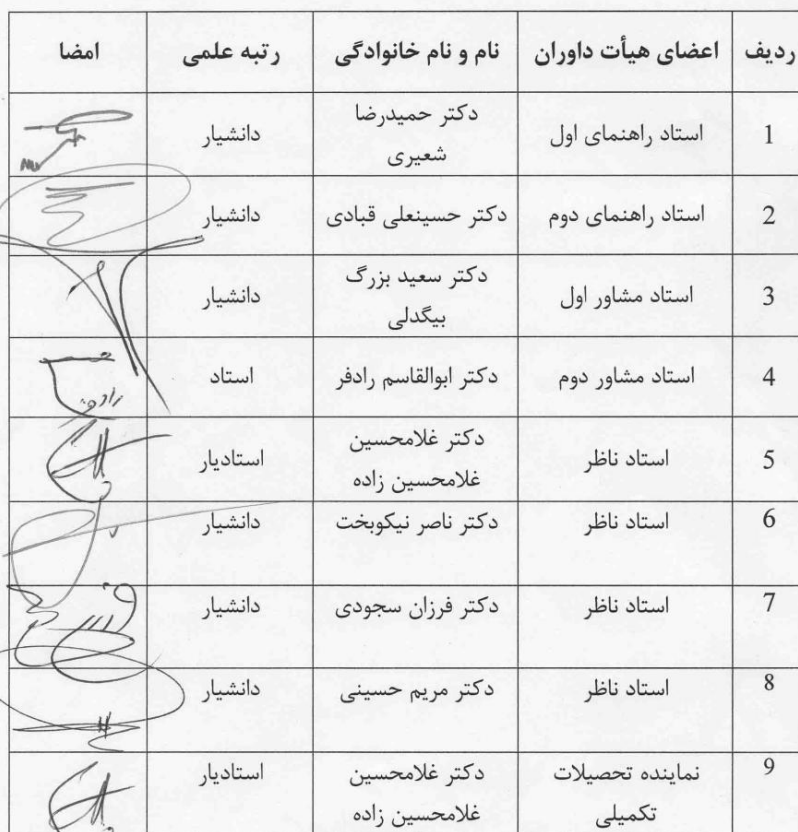 ردیف اعضای هیأت داوران نام و نام خانوادگی رتبه علمی امضا
1 استاد راهنمای اول دکتر حمیدرضا شعیری دانشیار
2 استاد راهنمای دوم دکتر حسینعلی قبادی دانشیار
3 استاد مشاور اول دکتر سعید بزرگ بیگدلی دانشیار
4 استاد مشاور دوم دکتر ابوالقاسم رادفر استاد
5 استاد ناظر دکتر غلامحسین غلامحسین زاده استادیار
6 استاد ناظر دکتر ناصر نیکوبخت دانشیار
7 استاد ناظر دکتر فرزان سجودی دانشیار
8 استاد ناظر دکتر مریم حسینی دانشیار
9 نماینده تحصیلات تکمیلی دکتر غلامحسین غلامحسین زاده استادیار